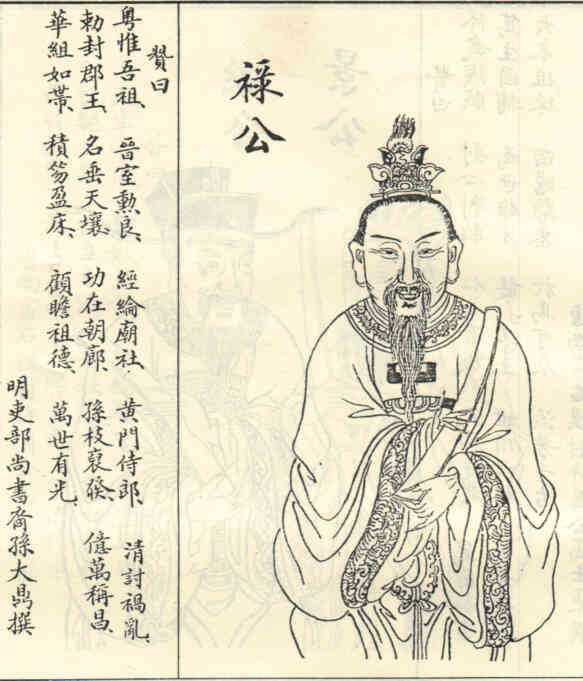 祿公
贊曰
粵惟吾祖、晉室勳良、經綸廟社、黃門侍郎、清討禍亂、
勅封郡王、名垂天壤、功在朝廊、孫枝裒發、億萬稱昌、
華組如帶、積笏盈床、顧瞻祖德、萬世有光、
明吏部尚書裔孫大鼎撰